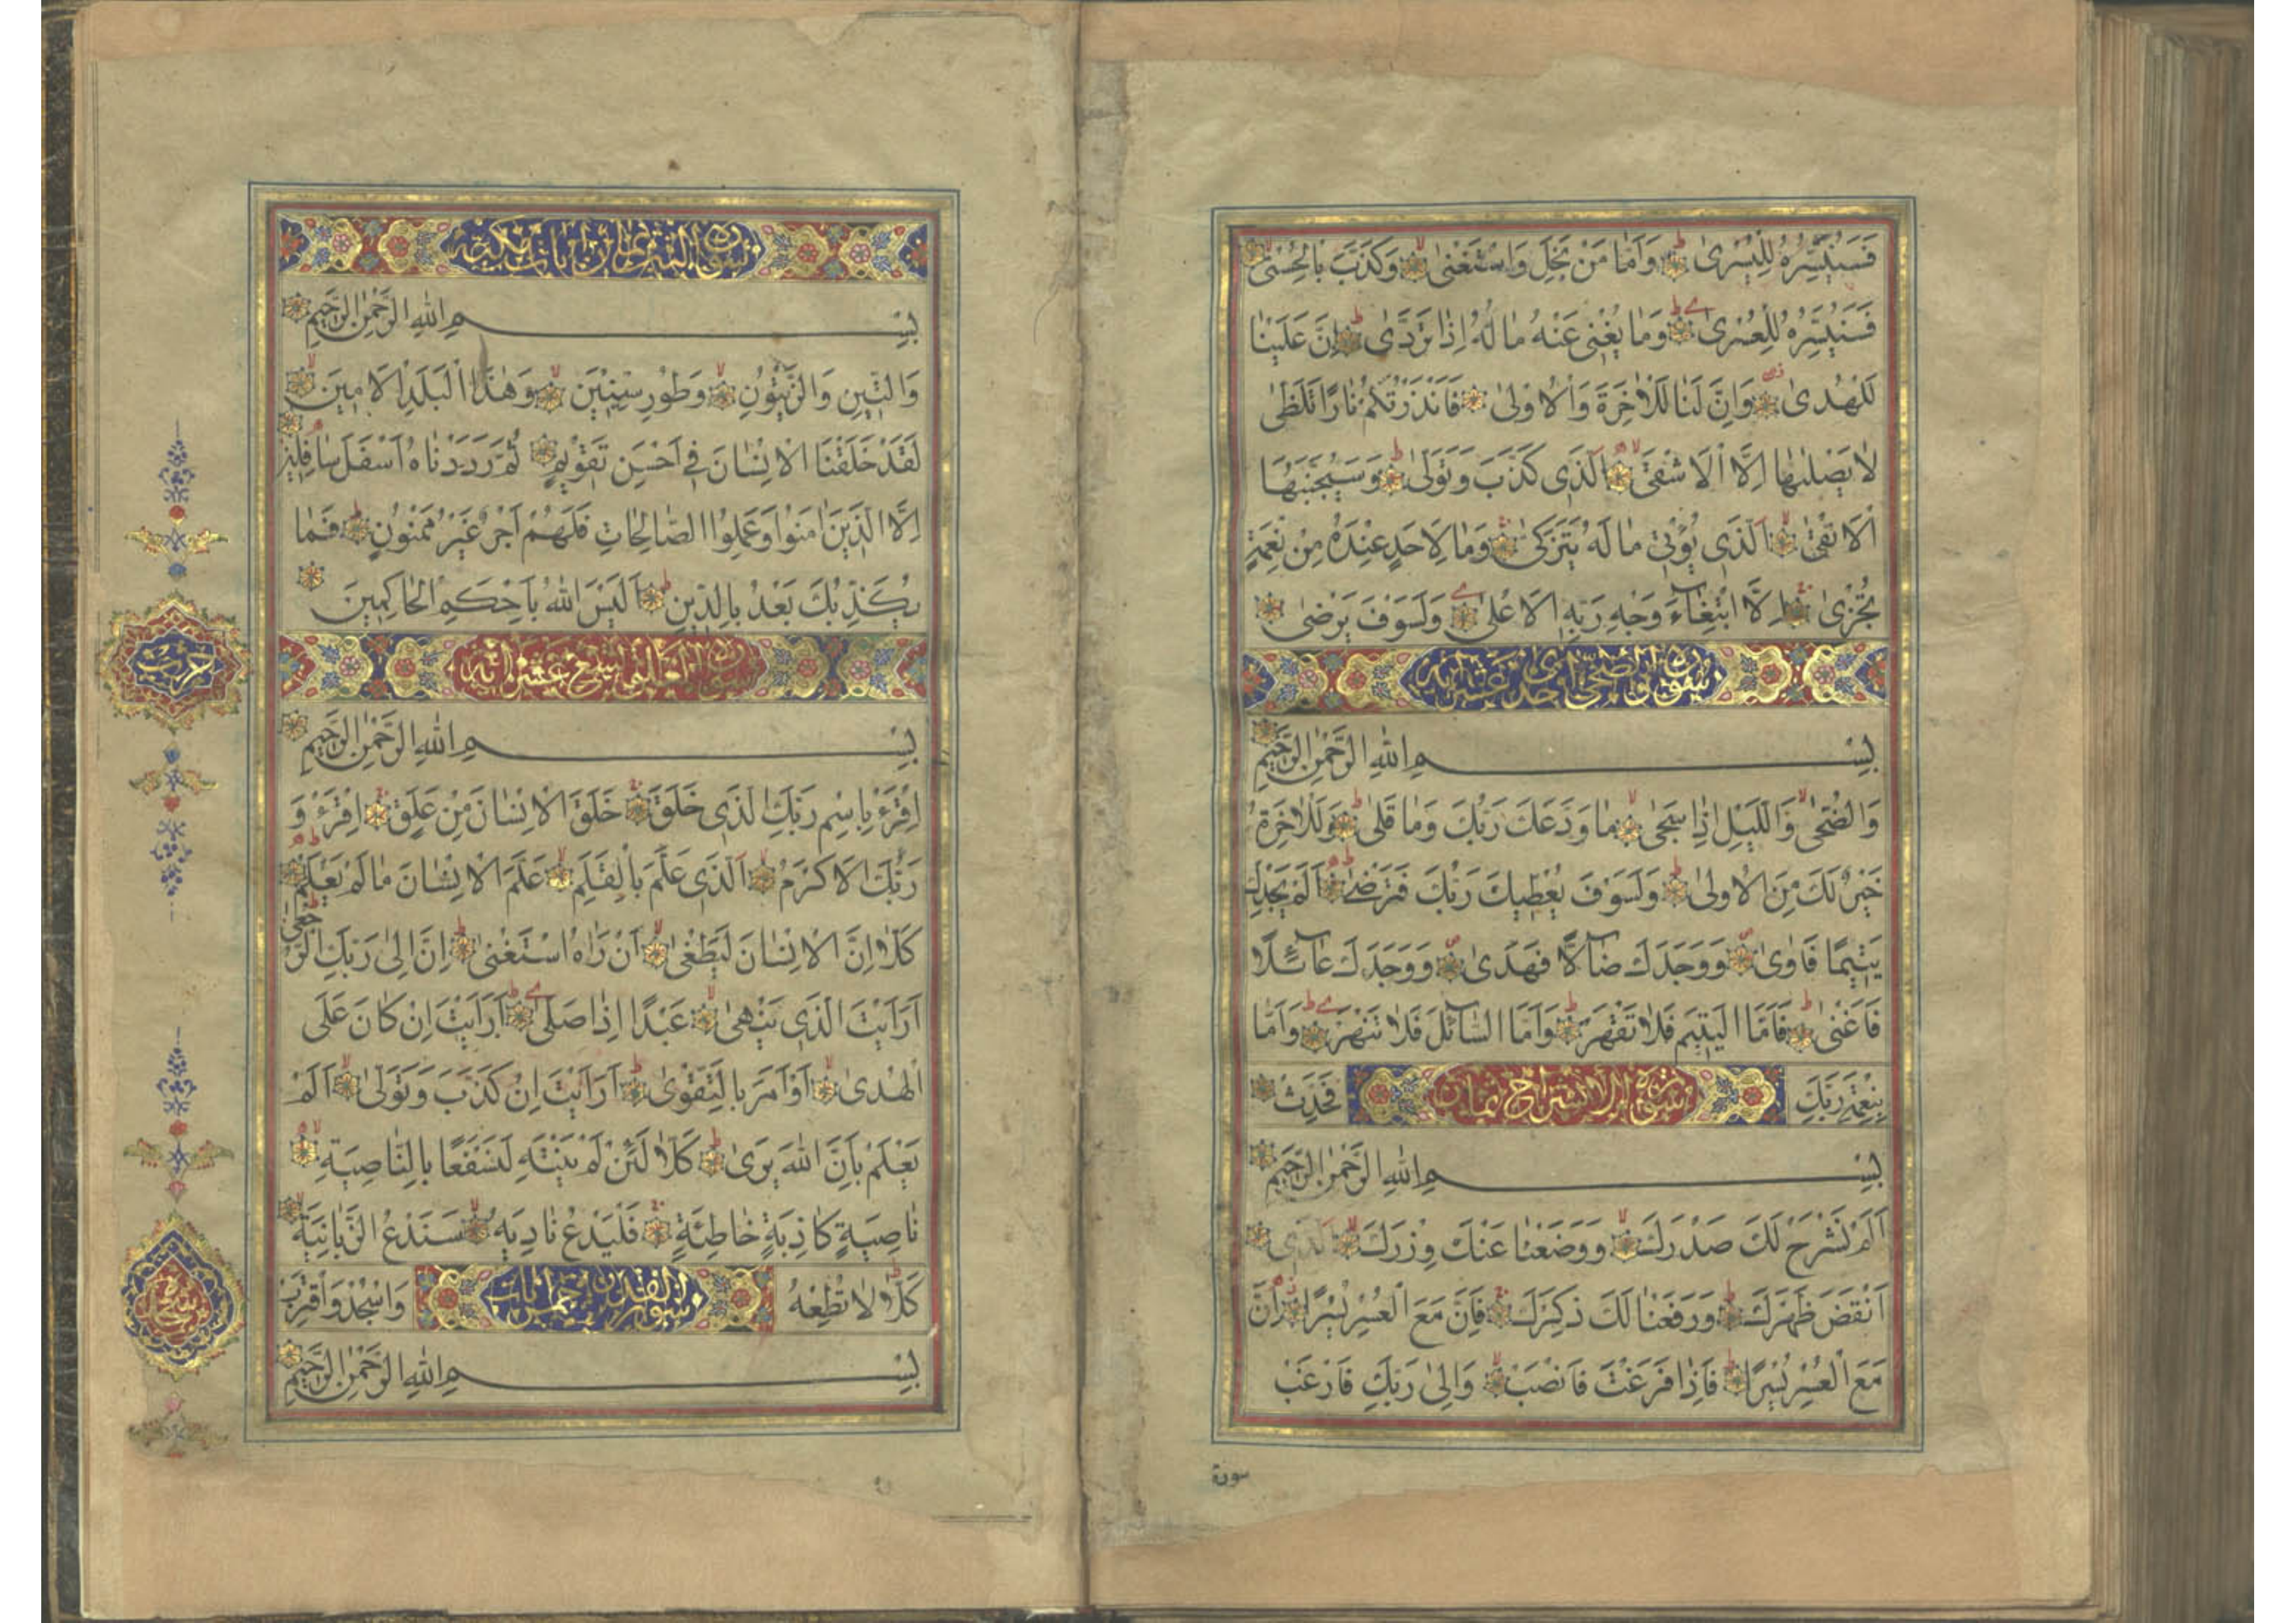 فَسَنُيَسِّرُهُ لِلْيُسْرٰى وَاَمَّا مَنْ بَخِلَ وَاسْتَغْنٰى وَكَذَّبَ بِالْحُسْنٰى
فَسَنُيَسِّرُهُ لِلْعُسْرٰى وَمَا يُغْنِى عَنْهُ مَالُهُ اِذَا تَرَدّٰى اِنَّ عَلَيْنَا
لَلْهُدٰى وَاِنَّ لَنَا لَلْاٰخِرَةَ وَالْاُولٰى فَاَنْذَرْتُكُمْ نَارًا تَلَظّٰى
لَا يَصْلٰيهَا اِلَّا الْاَشْقَى اَلَّذِى كَذَّبَ وَتَوَلّٰى وَسَيُجَنَّبُهَا
الْاَتْقٰى اَلَّذِى يُؤْتِى مَالَهُ يَتَزَكّٰى وَمَا لِاَحَدٍ عِنْدَهُ مِنْ نِعْمَةٍ
تُجْزٰى اِلَّا ابْتِغَاءَ وَجْهِ رَبِّهِ الْاَعْلٰى وَلَسَوْفَ يَرْضٰى
سورة والضحى احدى عشر اية
بِسْمِ اللهِ الرَّحْمٰنِ الرَّحِيمِ
وَالضُّحٰى وَالَّيْلِ اِذَا سَجٰى مَا وَدَّعَكَ رَبُّكَ وَمَا قَلٰى وَلَلْاٰخِرَةُ
خَيْرٌ لَكَ مِنَ الْاُولٰى وَلَسَوْفَ يُعْطِيكَ رَبُّكَ فَتَرْضٰى اَلَمْ يَجِدْكَ
يَتِيمًا فَاٰوٰى وَوَجَدَكَ ضَالًّا فَهَدٰى وَوَجَدَكَ عَائِلًا
فَاَغْنٰى فَاَمَّا الْيَتِيمَ فَلَا تَقْهَرْ وَاَمَّا السَّائِلَ فَلَا تَنْهَرْ وَاَمَّا
بِنِعْمَةِ رَبِّكَ فَحَدِّثْ
سورة الانشراح ثمان
بِسْمِ اللهِ الرَّحْمٰنِ الرَّحِيمِ
اَلَمْ نَشْرَحْ لَكَ صَدْرَكَ وَوَضَعْنَا عَنْكَ وِزْرَكَ اَلَّذِى
اَنْقَضَ ظَهْرَكَ وَرَفَعْنَا لَكَ ذِكْرَكَ فَاِنَّ مَعَ الْعُسْرِ يُسْرًا اِنَّ
مَعَ الْعُسْرِ يُسْرًا فَاِذَا فَرَغْتَ فَانْصَبْ وَاِلٰى رَبِّكَ فَارْغَبْ
سورة
سورة التين ثمان ايات مكية
بِسْمِ اللهِ الرَّحْمٰنِ الرَّحِيمِ
وَالتِّينِ وَالزَّيْتُونِ وَطُورِ سِينِينَ وَهٰذَا الْبَلَدِ الْاَمِينِ
لَقَدْ خَلَقْنَا الْاِنْسَانَ فِى اَحْسَنِ تَقْوِيمٍ ثُمَّ رَدَدْنَاهُ اَسْفَلَ سَافِلِينَ
اِلَّا الَّذِينَ اٰمَنُوا وَعَمِلُوا الصَّالِحَاتِ فَلَهُمْ اَجْرٌ غَيْرُ مَمْنُونٍ فَمَا
يُكَذِّبُكَ بَعْدُ بِالدِّينِ اَلَيْسَ اللهُ بِاَحْكَمِ الْحَاكِمِينَ
حزب
بِسْمِ اللهِ الرَّحْمٰنِ الرَّحِيمِ
اِقْرَءْ بِاسْمِ رَبِّكَ الَّذِى خَلَقَ خَلَقَ الْاِنْسَانَ مِنْ عَلَقٍ اِقْرَءْ وَ
رَبُّكَ الْاَكْرَمُ اَلَّذِى عَلَّمَ بِالْقَلَمِ عَلَّمَ الْاِنْسَانَ مَا لَمْ يَعْلَمْ
كَلَّا اِنَّ الْاِنْسَانَ لَيَطْغٰى اَنْ رَاٰهُ اسْتَغْنٰى اِنَّ اِلٰى رَبِّكَ الرُّجْعٰى
اَرَاَيْتَ الَّذِى يَنْهٰى عَبْدًا اِذَا صَلّٰى اَرَاَيْتَ اِنْ كَانَ عَلَى
الْهُدٰى اَوْ اَمَرَ بِالتَّقْوٰى اَرَاَيْتَ اِنْ كَذَّبَ وَتَوَلّٰى اَلَمْ
يَعْلَمْ بِاَنَّ اللهَ يَرٰى كَلَّا لَئِنْ لَمْ يَنْتَهِ لَنَسْفَعًا بِالنَّاصِيَةِ
نَاصِيَةٍ كَاذِبَةٍ خَاطِئَةٍ فَلْيَدْعُ نَادِيَهُ سَنَدْعُ الزَّبَانِيَةَ
كَلَّا لَا تُطِعْهُ وَاسْجُدْ وَاقْتَرِبْ
سورة القدر خمس ايات
بِسْمِ اللهِ الرَّحْمٰنِ الرَّحِيمِ